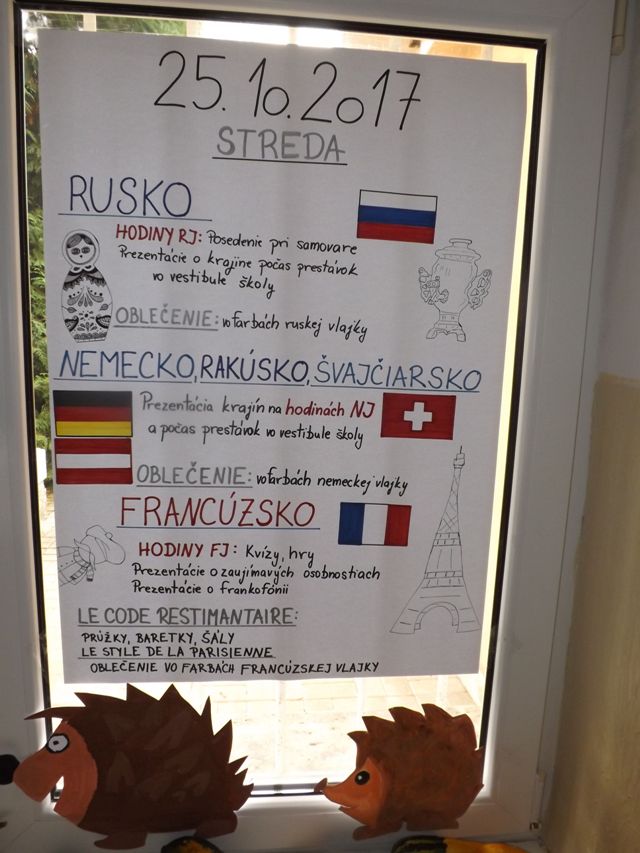 25. 10. 2017
STREDA
RUSKO
HODINY RJ: Posedenie pri samovare
Prezentácie o krajine počas prestávok
vo vestibule školy
OBLEČENIE: vo farbách ruskej vlajky
NEMECKO, RAKÚSKO, ŠVAJČIARSKO
Prezentácia krajín na hodinách NJ
a počas prestávok vo vestibule školy
OBLEČENIE: vo farbách nemeckej vlajky
FRANCÚZSKO
HODINY FJ: Kvízy, hry
Prezentácie o zaujímavých osobnostiach
Prezentácie o frankofónii
LE CODE RESTIMANTAIRE:
PRÚŽKY, BARETKY, ŠÁLY
LE STYLE DE LA PARISIENNE
OBLEČENIE VO FARBÁCH FRANCÚZSKEJ VLAJKY